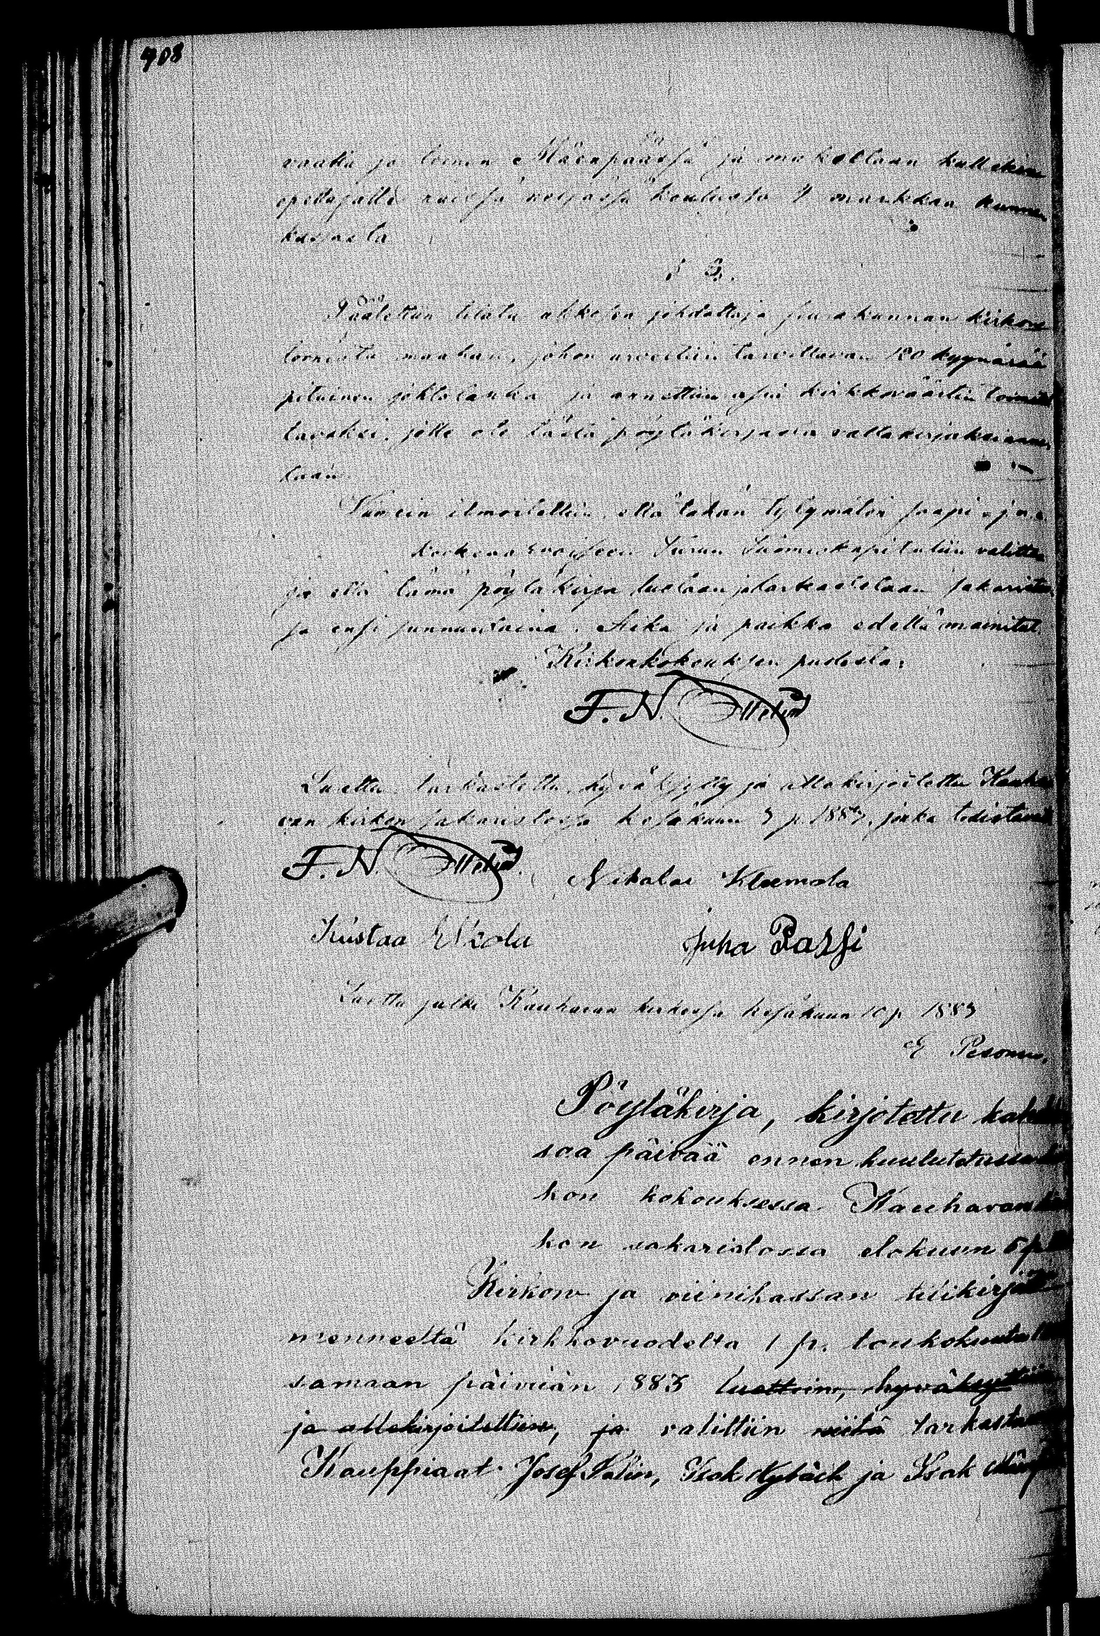 408
vaalla ja toinen Mäenpäässä ja maksetaan kullekin
opettajalle koulusta 4 markkaa kunnan
kassasta
§ 3.
Päätettiin tilata ukkosen johdattaja seurakunnan kirkon
tornista maahan, johon arveltiin tarvittavan 120 kyynärää
pituinen johtolanka ja annettiin asia kirkkoväärtin toimitet
tavaksi, jolle ote tästä pöytäkirjasta valtakirjaksi annet
taan.
ilmoitettiin, että tähän tytymätön saapi
Turun Tuomiokapituliin valittaa
ja että tämä pöytäkirja luetaan ja tarkastetaan sakaristossa
ja ensi sunnuntaina. Aika ja paikka edellä mainitut.
Kirkonkokouksen puolesta:
F. N.
Luettu, tarkastettu, hyväksytty ja allekirjoitettu Kauha
van kirkon sakaristossa kesäkuun 3 p. 1883, jonka todistavat
F. N.
Nikolai Kleemola
Kustaa
Juha Passi
Luettu julki Kauhavan kirkossa kesäkuun 10 p. 1883
E Pesonen.
Pöytäkirja, kirjotettu kah
saa päivää ennen kuulutetussa
kon kokouksessa Kauhavan
kon sakaristossa elokuun 5 p
Kirkon ja viinikassan tilikirjat
menneeltä kirkkovuodelta 1 p. toukokuuta
samaan päivään 1883 luettiin, hyväksyttiin
ja allekirjoitettiin, ja valittiin niitä tarkasta
Kauppiaat Josef Palin, Isak Kyläch ja Isak